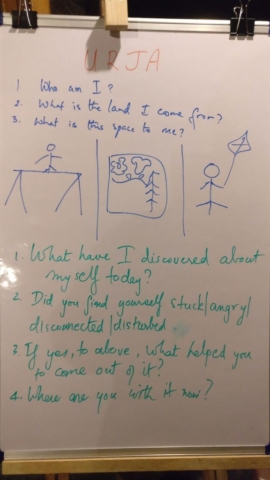 URJA
1 Who am I?
2. What is the land I come from?
3. What is this space to me?
1. What have I discovered about
myself today?
2 Did you find yourself stuck/angry/
disconnected/disturbed.
3. If yes, to above, what helped you
to come out of it?
4. Where are you with it now?